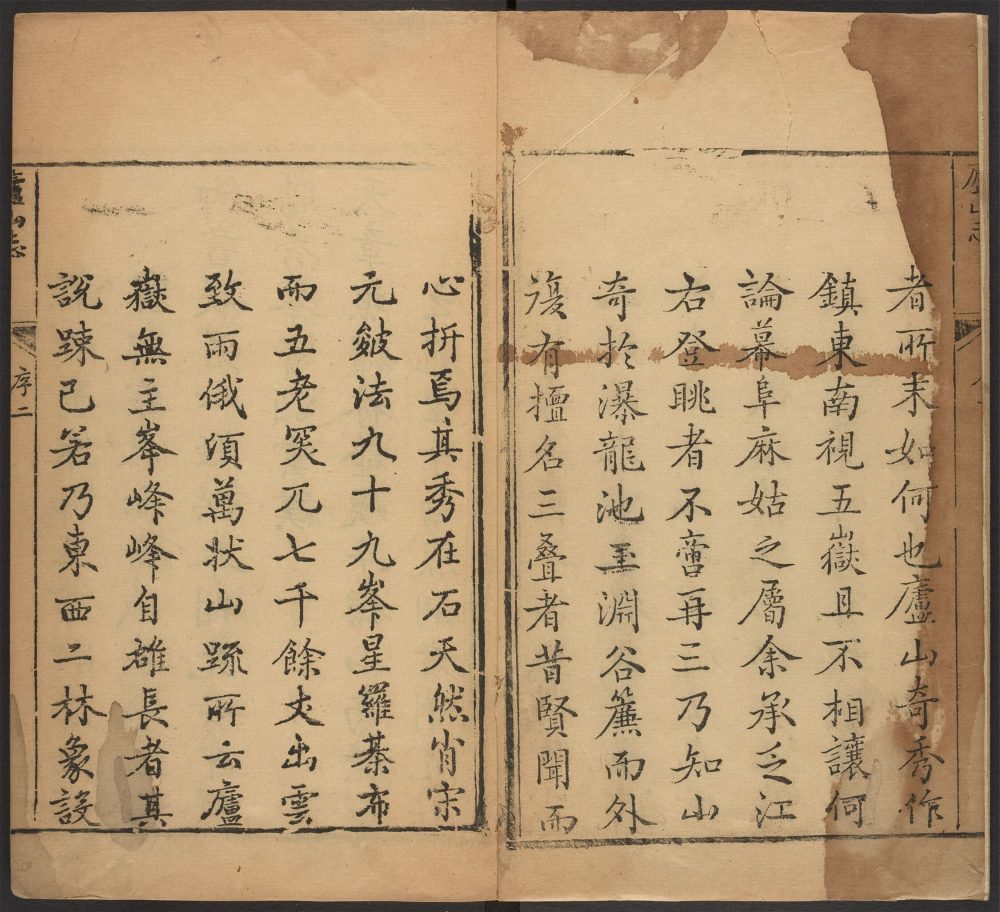 者所未如何也廬山奇秀作
鎮東南視五嶽且不相讓何
論幕阜麻姑之屬余承乏江
右登眺者不啻再三乃知山
奇於瀑龍池玉淵谷簾而外
復有擅名三叠者昔賢聞而
心折焉其秀在石天然肖宋
元皴法九十九峯星羅棊布
而五老突兀七千餘丈出雲
致雨俄頃萬狀山疏所云廬
嶽無主峯峰峰自雄長者其
説踈已若乃東西二林象設
廬山志
序二